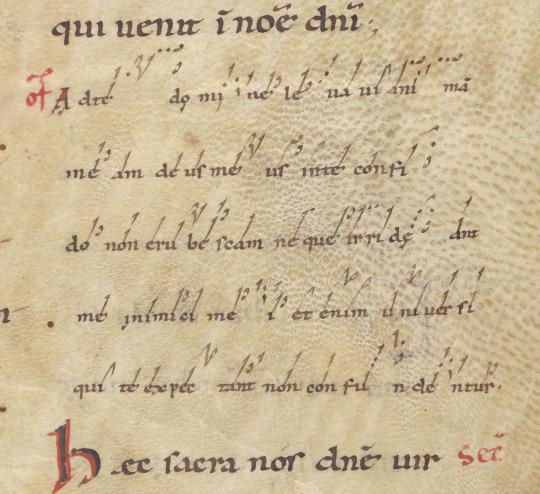 qui uenit ī noē dnī.
of A dte do mi ne le ua ui ani mā
me am de us me us in te con fi
do non eru be scam ne que irri de ant
me inimi ci me i et enim uni uer si
qui te expec tant non con fu n de ntur.
hec sacra nos dnē uir Sec̄